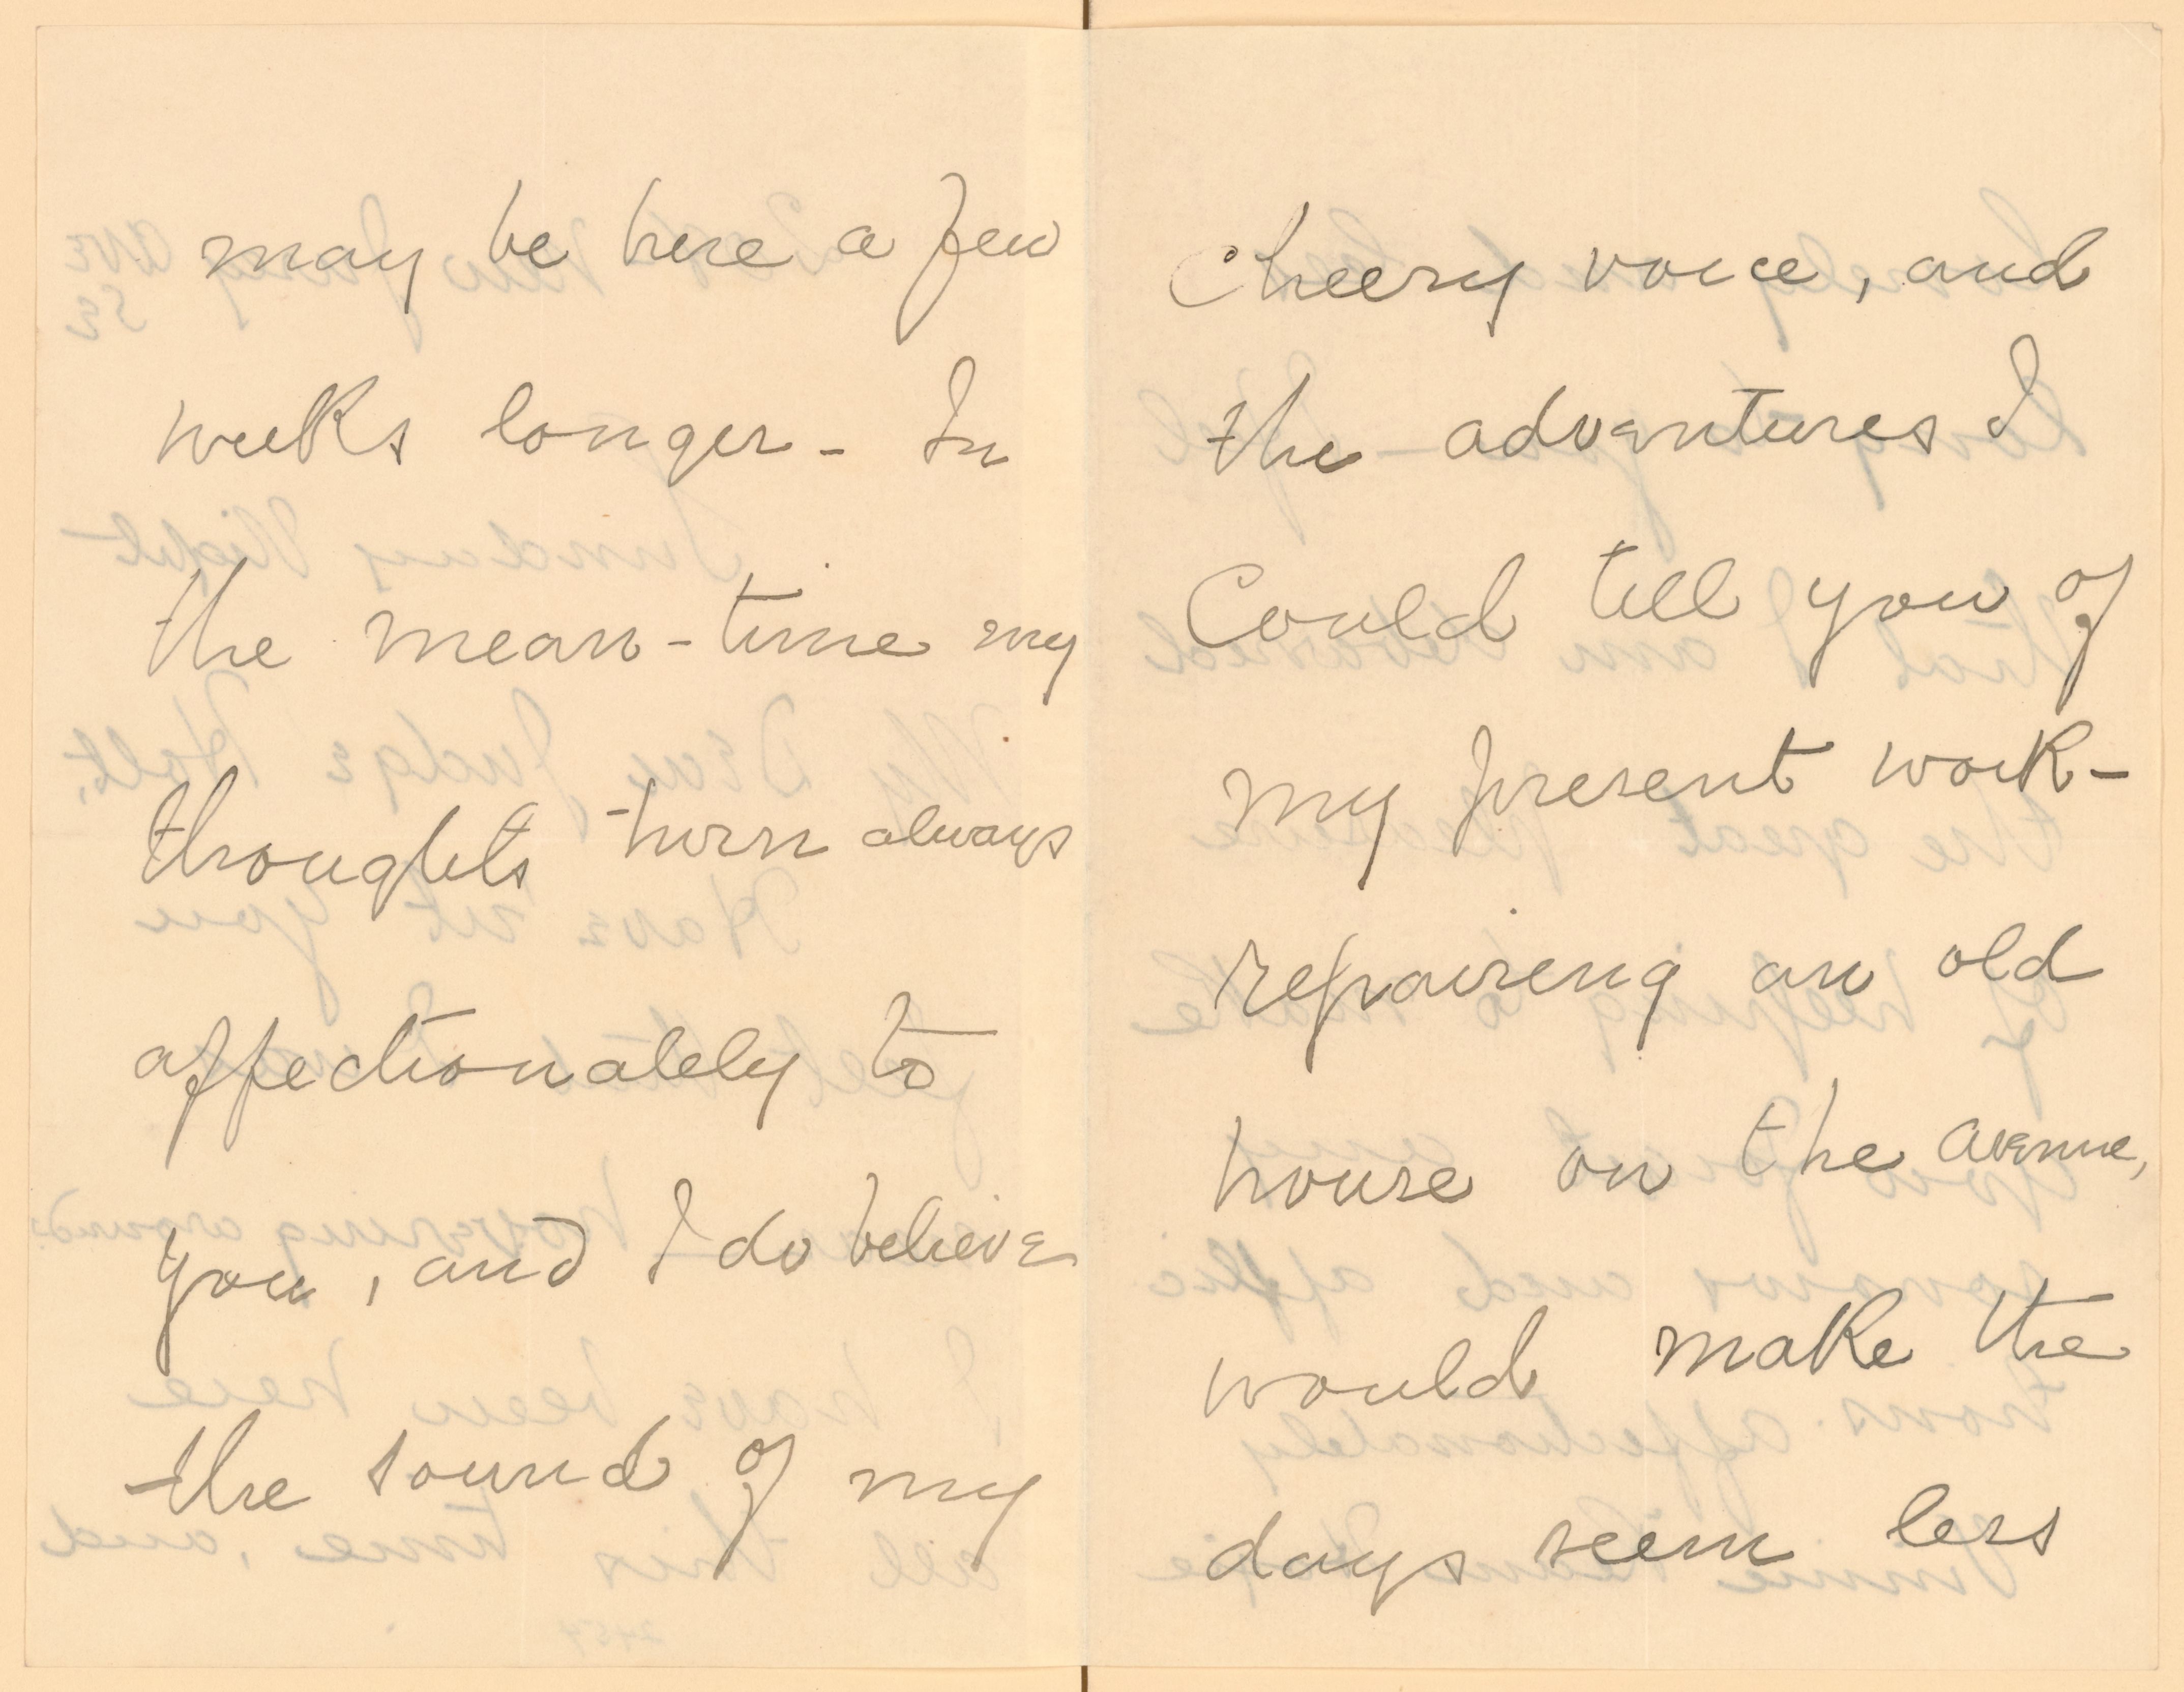 may be here a few
weeks longer - In
the mean-time my
thoughts turn always
affectionately to
you, and I do believe
the sound of my
cheery voice, and
the adventures I
Could tell you of
my present work -
repairing an old
house on the avenue,
would make the
days seem less